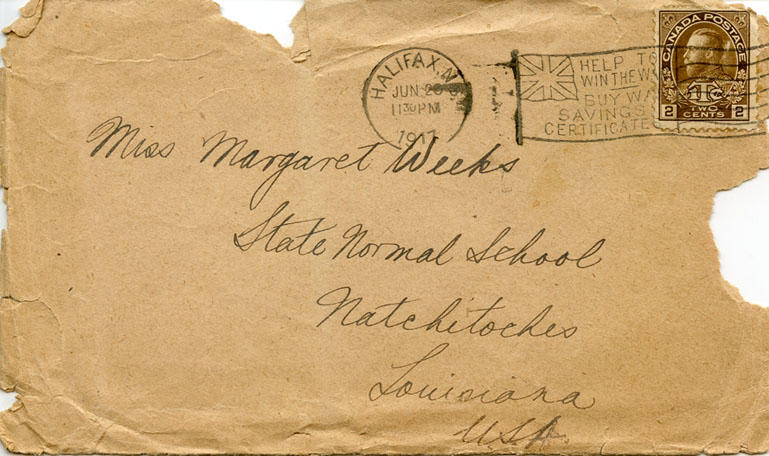 HALIFAX, N
JUN 20
11 30 PM
1917
HELP TO
WIN THE W
BUY WA
SAVINGS
CERTIFICATE
CANADA POSTAGE
2 TWO CENTS 2
Miss Margaret Weeks
State Normal School
Natchitoches
Louisiana
U.S.A.